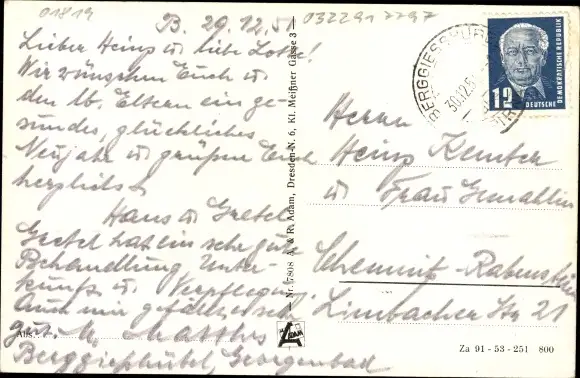 01819
B. 29.12.51
0322917797
Lieber Heinz u liebe Lotte!
Wir wünschen Euch u
den lb. Eltern ein ge-
sundes, glückliches
Neujahr u grüßen Euch
herzlichst
Hans u Gretel
Gretel hat ein sehr gute
Behandlung Unter-
kunft u Verpflegung.
Auch mir gefällt es sehr
gut.
Berggießhübel, Georgenbad
Aus
Nr. 7808 A. & R. Adam, Dresden-N. 6, Kl. Meißner Gasse 3
ADAM
BERGGIESSHÜBEL
30.12.5
12
DEUTSCHE
DEMOKRATISCHE REPUBLIK
Herrn
Heinz
u Frau Gemahlin
Chemnitz-Rabenstein
Limbacher Str 21
Za 91 - 53 - 251 800